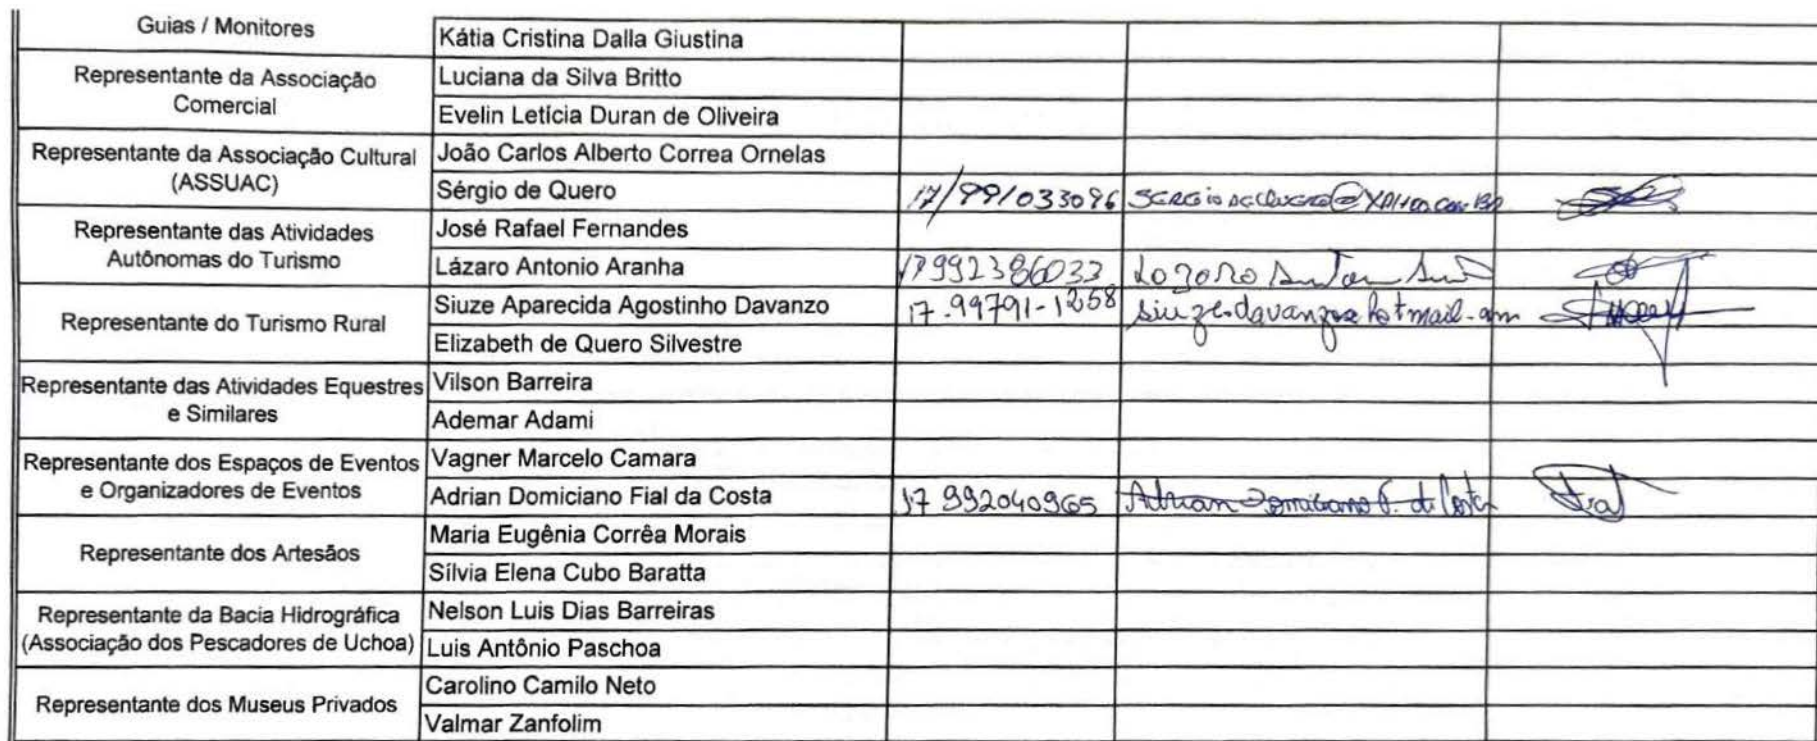 Guias / Monitores
Kátia Cristina Dalla Giustina
Representante da Associação
Comercial
Luciana da Silva Britto
Evelin Letícia Duran de Oliveira
Representante da Associação Cultural
(ASSUAC)
João Carlos Alberto Correa Ornelas
Sérgio de Quero 17/991033096
Representante das Atividades
Autônomas do Turismo
José Rafael Fernandes
Lázaro Antonio Aranha 17992386033
Representante do Turismo Rural
Siuze Aparecida Agostinho Davanzo 17-99791-1258
Elizabeth de Quero Silvestre
Representante das Atividades Equestres
e Similares
Vilson Barreira
Ademar Adami
Representante dos Espaços de Eventos
e Organizadores de Eventos
Vagner Marcelo Camara
Adrian Domiciano Fial da Costa 17 992040965 Adrian Domiciano F. da Costa
Representante dos Artesãos
Maria Eugênia Corrêa Morais
Sílvia Elena Cubo Baratta
Representante da Bacia Hidrográfica
(Associação dos Pescadores de Uchoa)
Nelson Luis Dias Barreiras
Luis Antônio Paschoa
Representante dos Museus Privados
Carolino Camilo Neto
Valmar Zanfolim